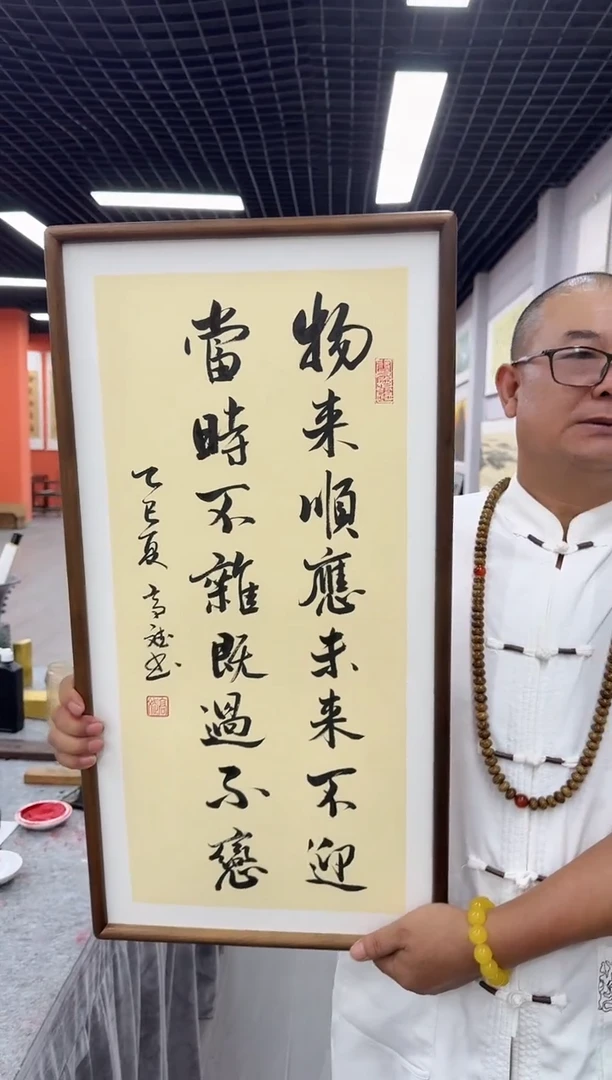 物来順應未来不迎
當時不雜既過不戀
乙巳夏 高斌书